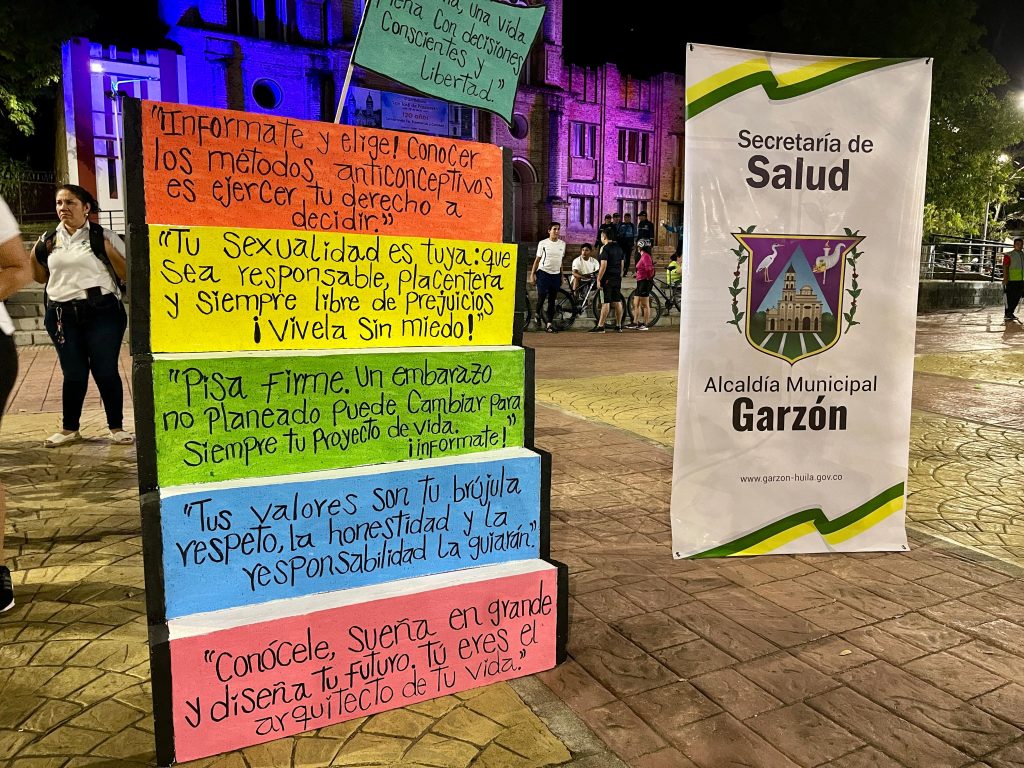 una vida
llena con decisiones
conscientes y
libertad."
120 años
"Informate y elige! Conocer
los métodos anticonceptivos
es ejercer tu derecho a
decidir."
"Tu sexualidad es tuya: que
sea responsable, placentera
y siempre libre de prejuicios
¡Vivela sin miedo!"
"Pisa firme. Un embarazo
no planeado puede cambiar para
siempre tu proyecto de vida.
¡informate!
"Tus valores son tu brújula
respeto, la honestidad y la
responsabilidad la guiarán."
"Conócele, sueña en grande
y diseña tu futuro. Tú eres el
arquitecto de tu vida."
Secretaría de
Salud
Alcaldía Municipal
Garzón
www.garzon-huila.gov.co